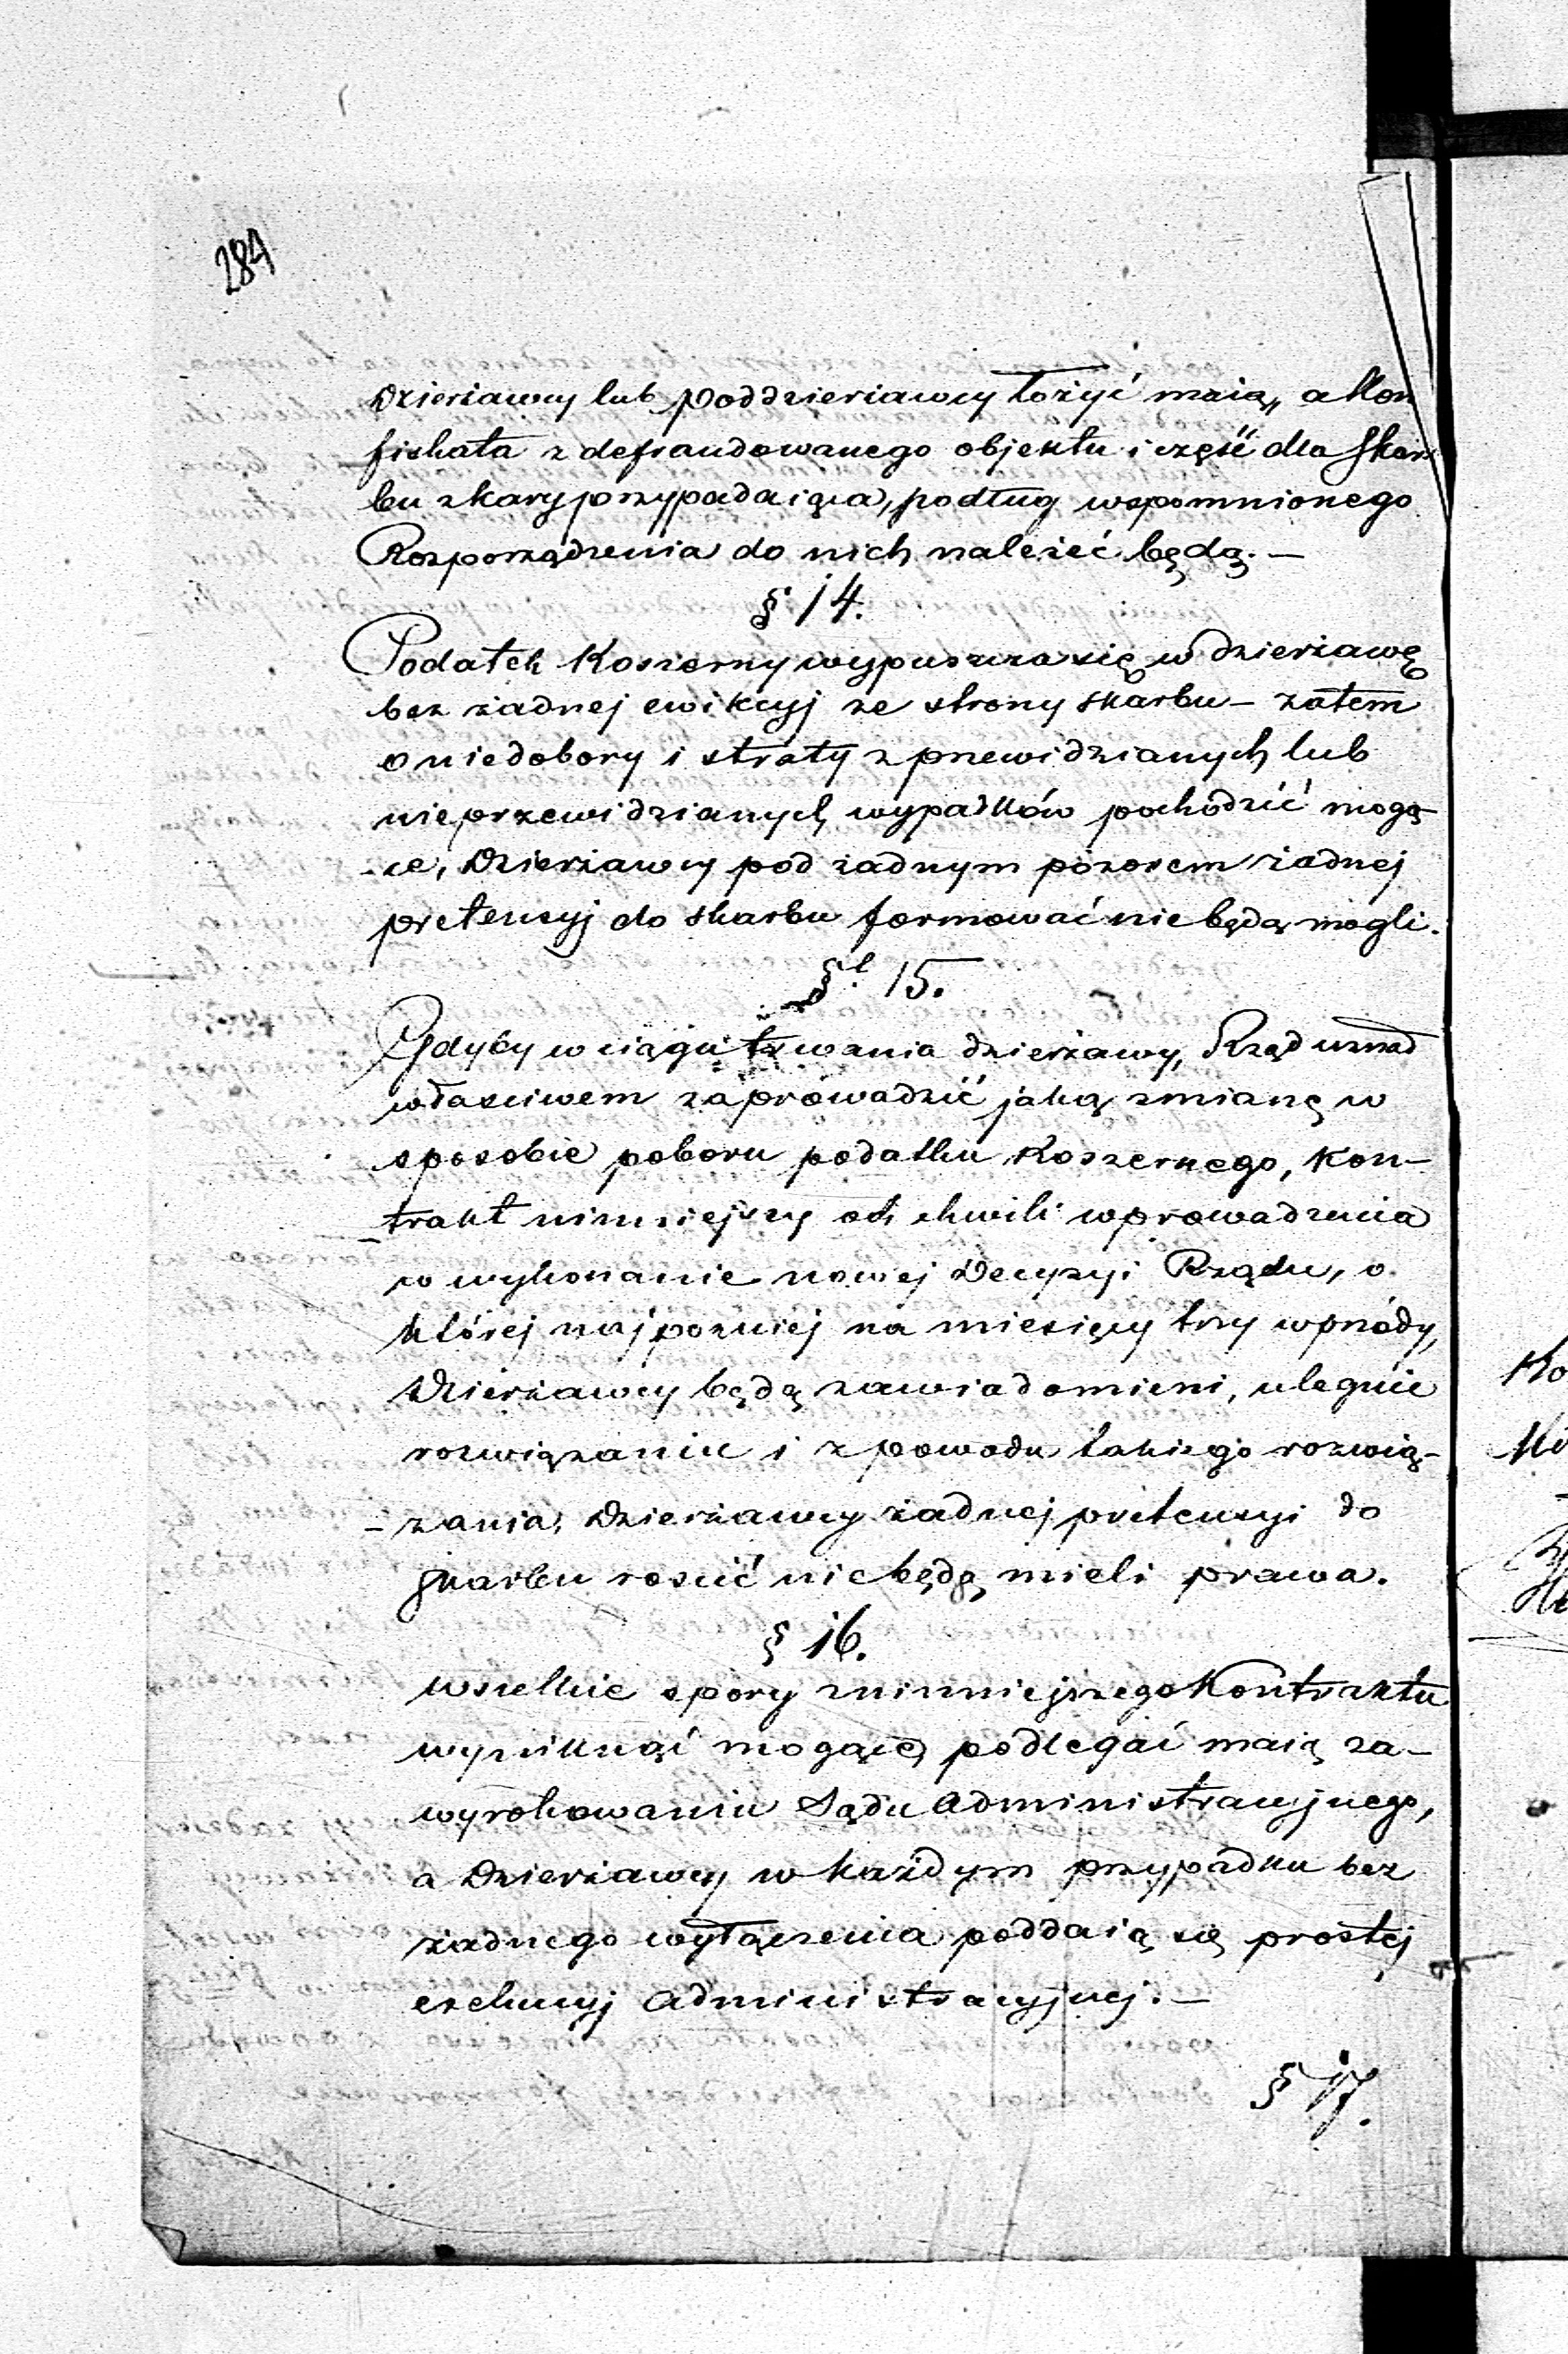 284
Dzierżawcy lub poddzierżawcy łożyć maią, a kon
fiskata z defraudowanego objektu i część dla Skar
bu z kary przypadaiąca, podług wspomnionego
Rozporządzenia do nich należeć będą. —
§ 14.
Podatek Koszerny wypuszcza się w dzierżawę
bez żadnej ewikcyj ze strony skarbu — zatem
o niedobory i straty z przewidzianych lub
nieprzewidzianych wypadków pochodzić mogą-
-ce, Dzierżawcy pod żadnym pozorem żadnej
pretensyj do skarbu formować nie będą mogli.
§ 15.
Gdyby w ciągu trwania dzierżawy, Rząd uznał
właściwem zaprowadzić jaką zmianę w
sposobie poboru podatku Koszernego, Kon-
-trakt niniejszy od chwili wprowadzenia
w wykonanie nowej Decyzyi Rządu, o
której najpozniej na miesięcy trzy wprzódy,
Dzierżawcy będą zawiadomieni, ulegnie
rozwiązaniu i z powodu takiego rozwią-
-zania, Dzierżawcy żadnej pretensyi do
skarbu rościć nie będą mieli prawa.
§ 16.
Wszelkie spory z ninniejszego Kontraktu
wyniknąć mogące, podlegać maią za-
wyrokowaniu Sądu Administracyjnego,
a Dzierżawcy w każdym przypadku bez
żadnego wyłączenia poddaią się prostej
exekucyj Administracyjnej. —
§ 17.